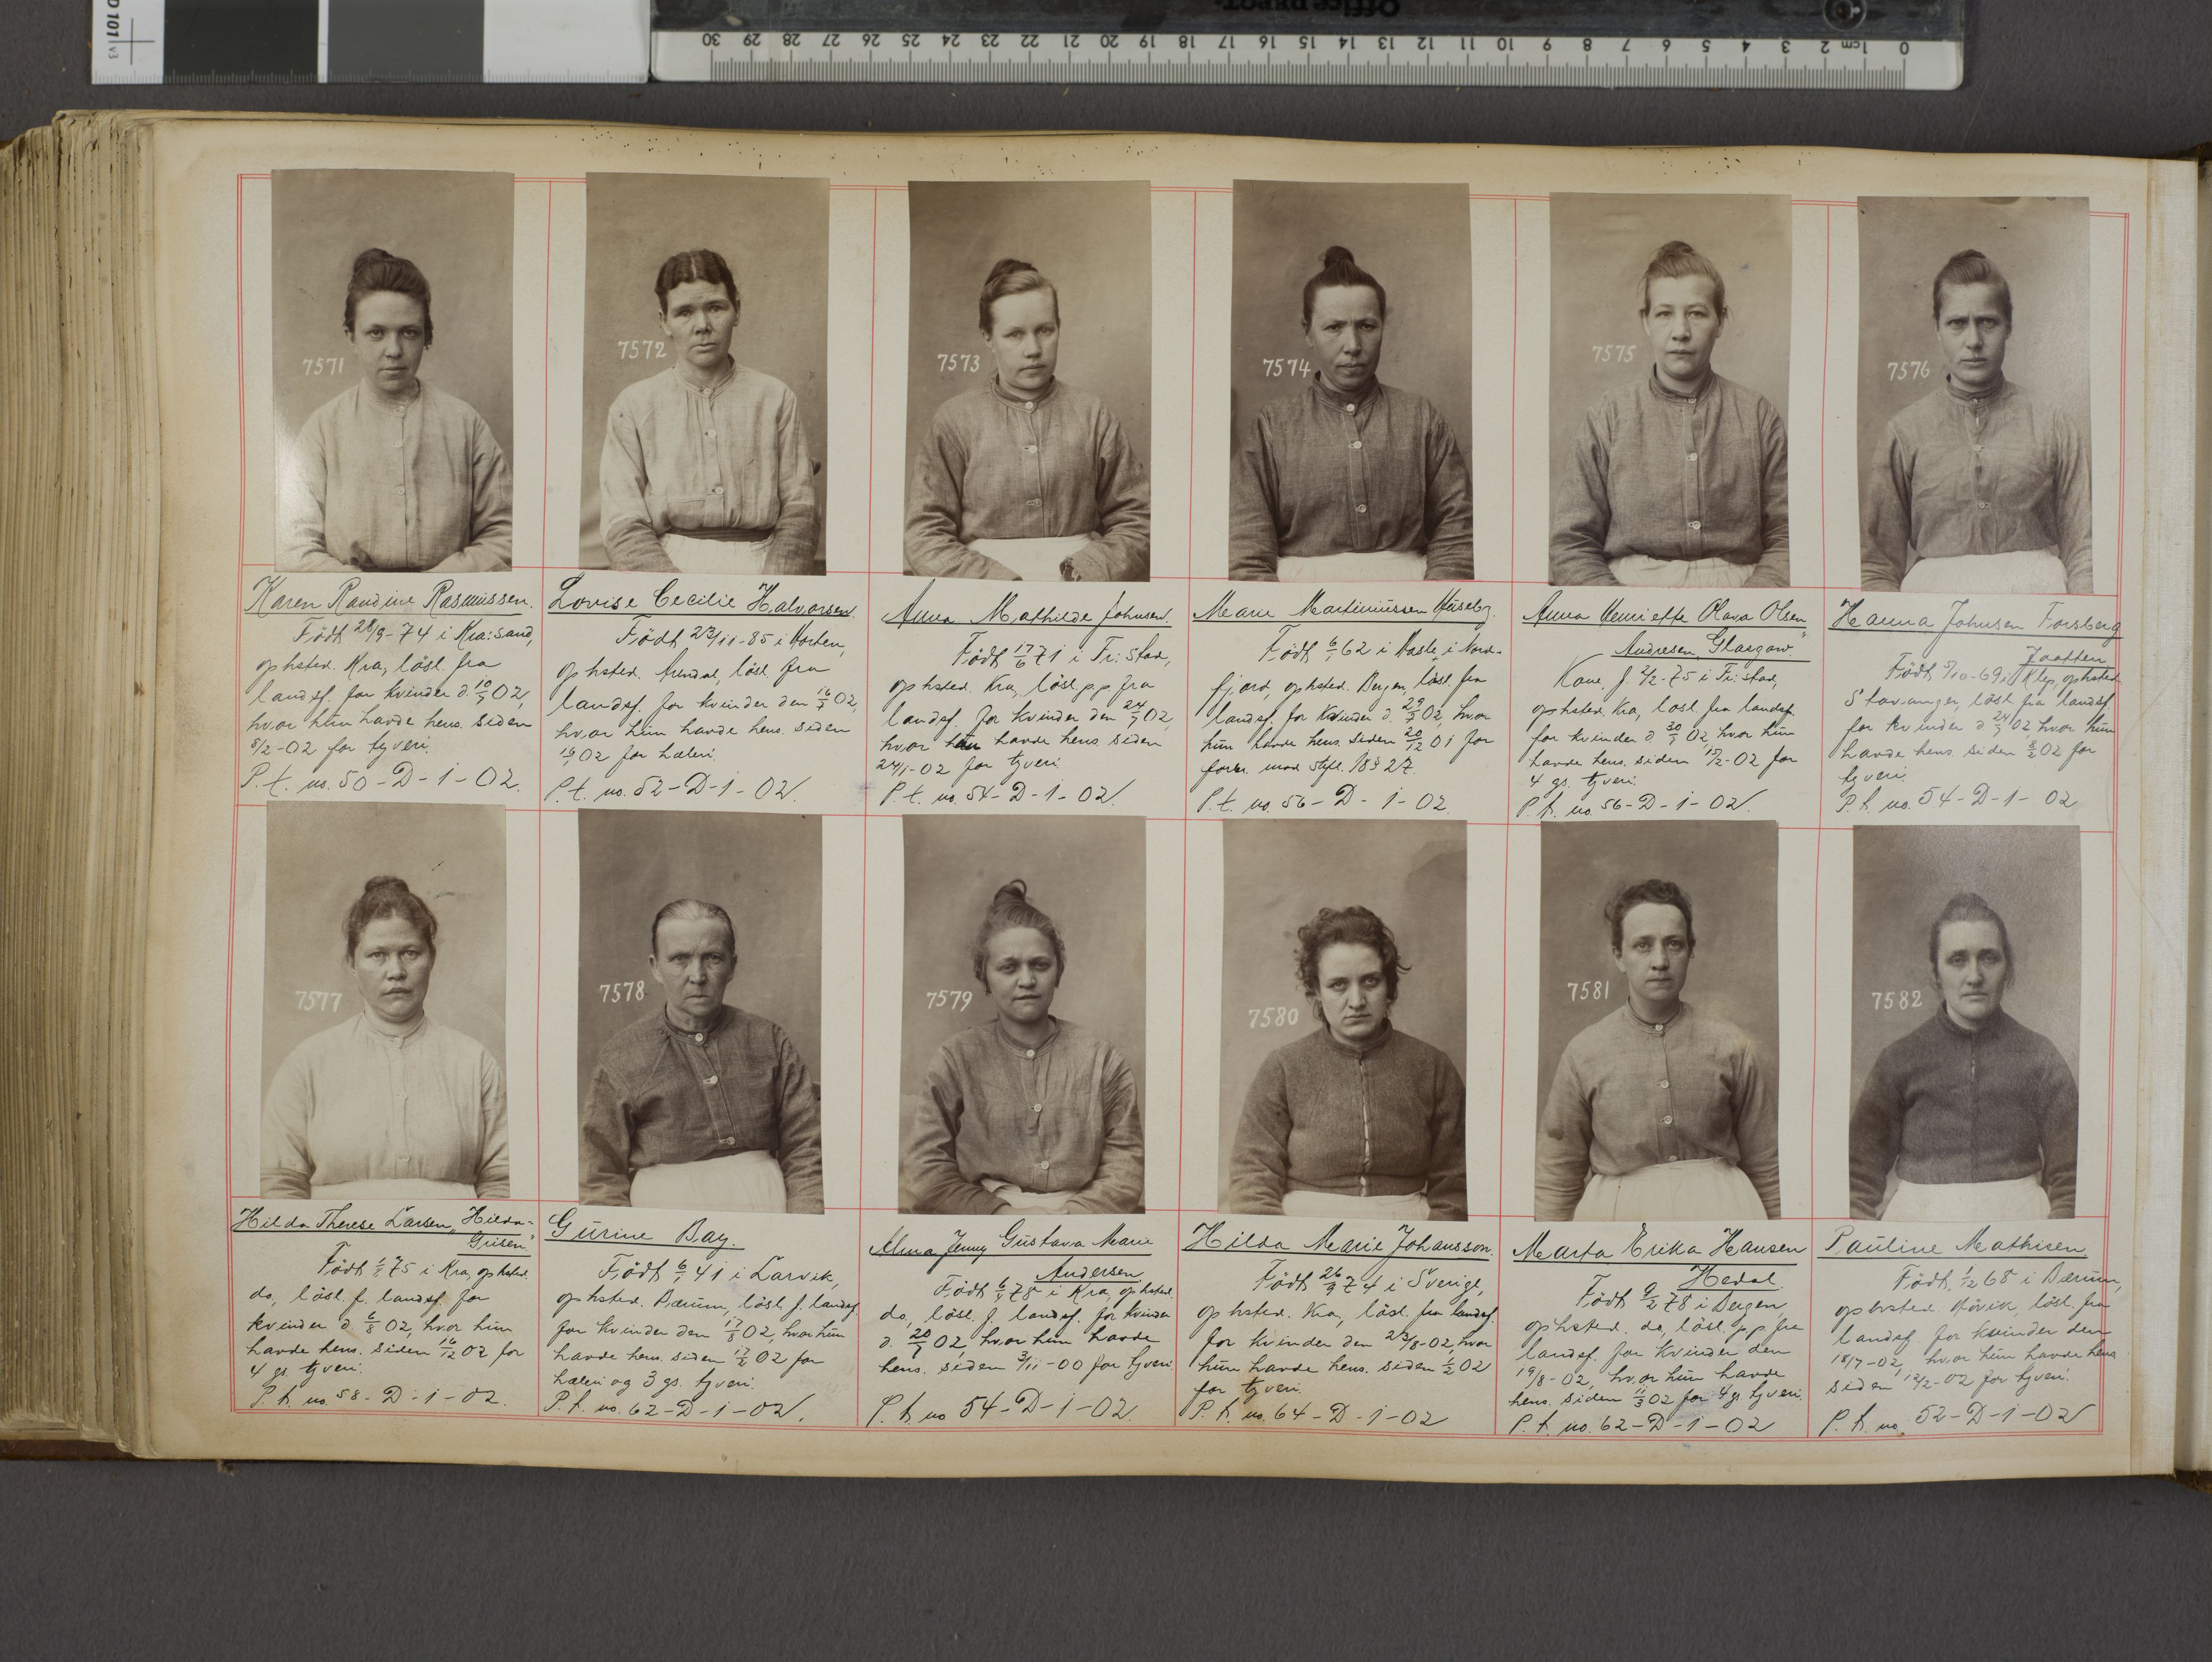 D 101 v3
Office DEPOT
30 29 28 27 26 25 24 23 22 21 20 19 18 17 16 15 14 13 12 11 10 9 8 7 6 5 4 3 2 1cm 0
7571
Karen Raudine Rasmussen.
Födt 28/9-74 i Kra:sand,
ophsted. Kra, lösl. fra
landsf. for kvinder d. 10/7 02,
hvor hun havde hens. siden
8/2-02 for tyveri.
P.t. no. 50-D-1-02.
7572
Lovise Cecilie Halvorsen
Födt 23/11-85 i Horten,
ophsted. Arendal, lösl. fra
landsf. for kvinder den 16/7 02,
hvor hun havde hens. siden
02 for hæleri.
P.t. no. 52-D-1-02.
7573
Anna Mathilde Johnsen.
Födt 17/6 71 i Fr:stad,
ophsted. Kra, lösl. p.p. fra
landsf. for kvinder den 24/7 02,
hvor hun havde hens. siden
24/1-02 for tyveri.
P.t. no. 54-D-1-02.
7574
Marie Martinussen
Födt 6/1 62 i i Nord-
fjord, ophsted. Bergen, lösl. fra
landsf. for kvinder d. 29/7 02, hvor
hun havde hens. siden 20/12 01 for
P.t. no. 56-D-1-02.
7575
Anna Henriette Olava Olsen
Andresen "Glasgow"
Kone, f. 2/2-75 i Fr:stad,
ophsted. Kra, lösl. fra landsf.
for kvinder d. 30/7 02, hvor hun
havde hens. siden 15/2-02 for
4 gs. tyveri.
P.t. no. 56-D-1-02.
7576
Hanna Johnsen Forsberg
Jaatten
Födt 5/10-69 i Klep, ophsted.
Stavanger, lösl. fra landsf.
for kvinder d. 24/7 02 hvor hun
havde hens. siden 02 for
tyveri.
P.t. no. 54-D-1-02
7577
Hilda Therese Larsen, "Hilda-
Grisen"
Födt 75 i Kra, ophsted.
do, lösl. f. landsf. for
kvinder d. 6/8 02, hvor hun
havde hens. siden 02 for
4 gs. tyveri.
P.t. no. 58-D-1-02.
7578
Gurine Bay.
Födt 6/1 41 i Larvik,
ophsted. Bærum, lösl. f. landsf.
for kvinder den 17/8 02, hvor hun
havde hens. siden 02 for
hæleri og 3 gs. tyveri.
P.t. no. 62-D-1-02.
7579
Alma Jenny Gustava Marie
Andersen
Födt 78 i Kra, ophsted.
do, lösl. f. landsf. for kvinder
d. 02, hvor hun havde
hens. siden 3/11-00 for tyveri.
P.t. no 54-D-1-02.
7580
Hilda Marie Johansson.
Födt 26/9 74 i Sverige,
ophsted. Kra, lösl. fra landsf.
for kvinder den 23/8-02, hvor
hun havde hens. siden 1/2 02
for tyveri.
P.t. no. 64-D-1-02
7581
Marta Erika Hansen
Hedal.
Födt 9/2 78 i Bergen,
ophsted. do, lösl. p.p. fra
landsf. for kvinder den
19/8-02, hvor hun havde
hens. siden 11/3 02 for 4 gs. tyveri.
P.t. no. 62-D-1-02
7582
Pauline Mathisen
Födt 1/12 68 i Bærum,
ophsted. Gjövik, lösl. fra
landsf. for kvinder den
18/7-02, hvor hun havde hens.
siden 12/2-02 for tyveri.
P.t. no. 52-D-1-02